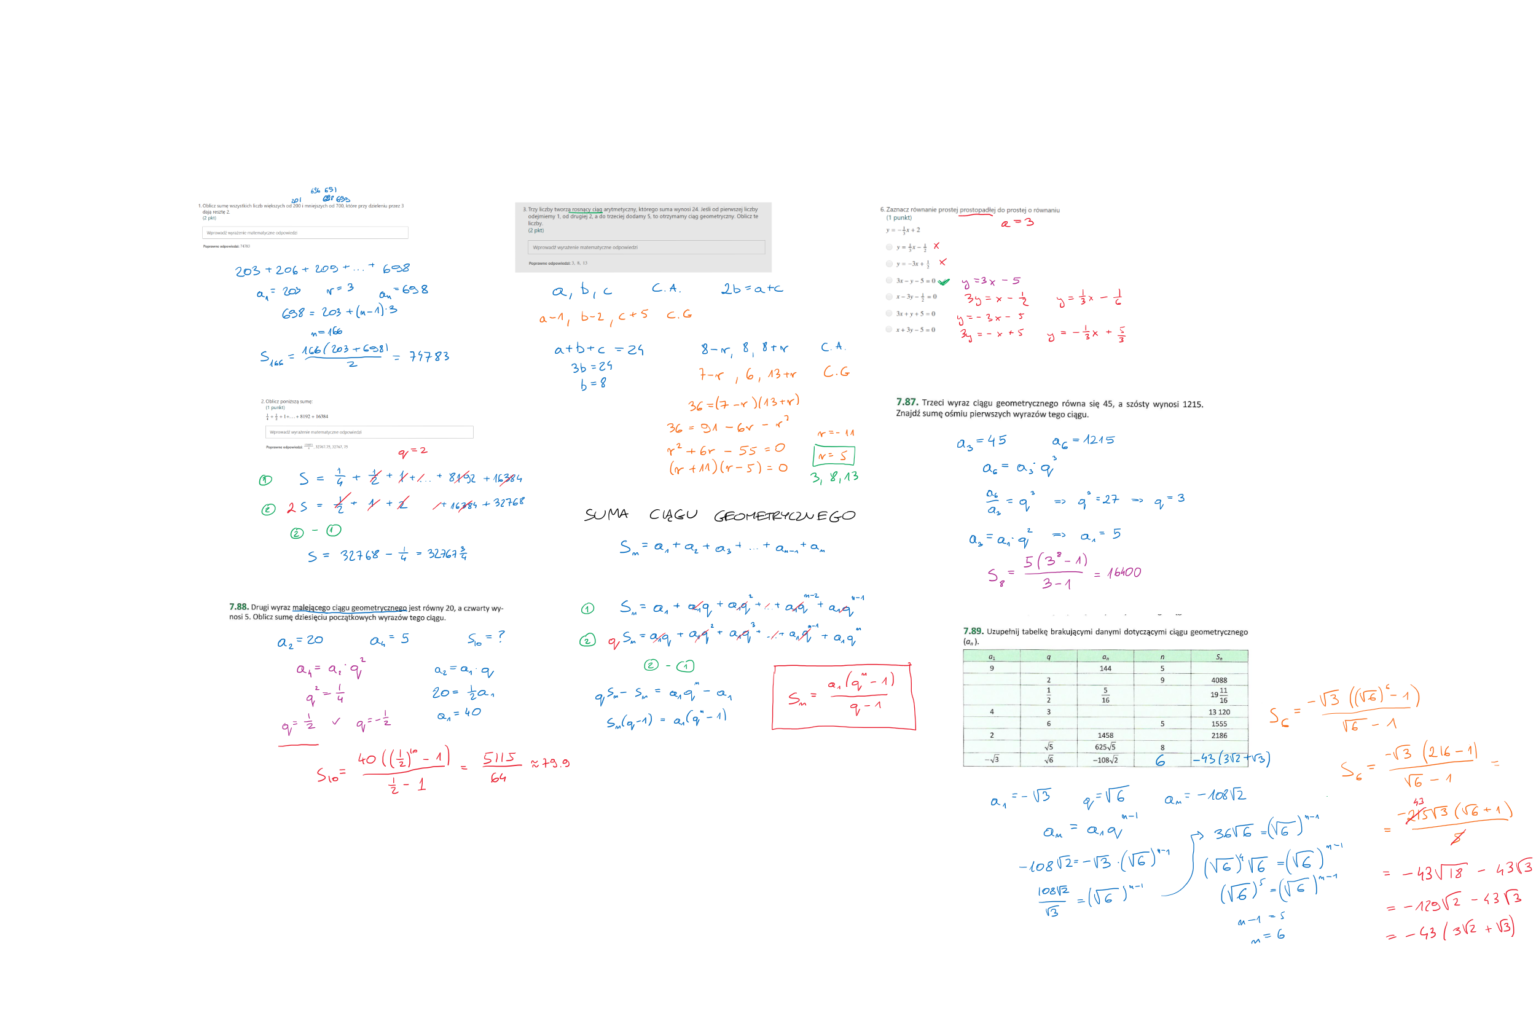 656 651
201 698 695
1. Oblicz sumę wszystkich liczb większych od 200 i mniejszych od 700, które przy dzieleniu przez 3
dają resztę 2.
(2 pkt)
Wprowadź wyrażenie matematyczne odpowiedzi
Poprawna odpowiedź:
203 + 206 + 209 + ... + 698
a₁ = 203 r = 3 aₙ = 698
698 = 203 + (n-1)·3
n = 166
S₁₆₆ = 166(203 + 698) / 2 = 74783
2. Oblicz poniższą sumę:
(1 punkt)
1/4 + 1/2 + 1 + ... + 8192 + 16384
Wprowadź wyrażenie matematyczne odpowiedzi
q = 2
① S = 1/4 + 1/2 + 1 + ... + 8192 + 16384
② 2S = 1/2 + 1 + 2 + 16384 + 32768
② - ①
S = 32768 - 1/4 = 32767 3/4
7.88. Drugi wyraz malejącego ciągu geometrycznego jest równy 20, a czwarty wy-
nosi 5. Oblicz sumę dziesięciu początkowych wyrazów tego ciągu.
a₂ = 20 a₄ = 5 S₁₀ = ?
a₄ = a₂·q² a₂ = a₁·q
q² = 1/4 20 = 1/2 a₁
q = 1/2 ✓ q = -1/2 a₁ = 40
S₁₀ = 40((1/2)¹⁰ - 1) / (1/2 - 1) = 5115/64 ≈ 79.9
3. Trzy liczby tworzą rosnący ciąg arytmetyczny, którego suma wynosi 24. Jeśli od pierwszej liczby
odejmiemy 1, od drugiej 2, a do trzeciej dodamy 5, to otrzymamy ciąg geometryczny. Oblicz te
liczby.
(2 pkt)
Wprowadź wyrażenie matematyczne odpowiedzi
Poprawna odpowiedź: 3, 8, 13
a, b, c C.A. 2b = a+c
a-1, b-2, c+5 C.G
a+b+c = 24 8-r, 8, 8+r C.A.
3b = 24 7-r, 6, 13+r C.G
b = 8
36 = (7-r)(13+r)
36 = 91 - 6r - r²
r² + 6r - 55 = 0
(r+11)(r-5) = 0
r = -11
r = 5
3, 8, 13
SUMA CIĄGU GEOMETRYCZNEGO
Sₙ = a₁ + a₂ + a₃ + ... + aₙ₋₁ + aₙ
① Sₙ = a₁ + a₁q + a₁q² + ... + a₁qⁿ⁻² + a₁qⁿ⁻¹
② qSₙ = a₁q + a₁q² + a₁q³ + ... + a₁qⁿ⁻¹ + a₁qⁿ
② - ①
qSₙ - Sₙ = a₁qⁿ - a₁
Sₙ(q-1) = a₁(qⁿ-1)
Sₙ = a₁(qⁿ - 1) / (q - 1)
6. Zaznacz równanie prostej prostopadłej do prostej o równaniu
(1 punkt)
a = 3
y = -1/3x + 2
3x - y - 5 = 0 ✓ y = 3x - 5
x - 3y - 1/2 = 0 3y = x - 1/2 y = 1/3x - 1/6
3x + y + 5 = 0 y = -3x - 5
x + 3y - 5 = 0 3y = -x + 5 y = -1/3x + 5/3
7.87. Trzeci wyraz ciągu geometrycznego równa się 45, a szósty wynosi 1215.
Znajdź sumę ośmiu pierwszych wyrazów tego ciągu.
a₃ = 45 a₆ = 1215
a₆ = a₃·q³
a₆/a₃ = q³ => q³ = 27 => q = 3
a₃ = a₁·q² => a₁ = 5
S₈ = 5(3⁸ - 1) / (3-1) = 16400
7.89. Uzupełnij tabelkę brakującymi danymi dotyczącymi ciągu geometrycznego
(aₙ).
a₁ q aₙ n Sₙ
9 144 5
2 9 4088
1/2 5/16 19 11/16
4 3 13 120
6 5 1555
2 1458 2186
√5 625√5 8
-√3 √6 -108√2 6 -43(3√2+√3)
a₁ = -√3 q = √6 aₙ = -108√2
aₙ = a₁qⁿ⁻¹
-108√2 = -√3·(√6)ⁿ⁻¹
108√2/√3 = (√6)ⁿ⁻¹
36√6 = (√6)ⁿ⁻¹
(√6)⁴√6 = (√6)ⁿ⁻¹
(√6)⁵ = (√6)ⁿ⁻¹
n-1 = 5
n = 6
S₆ = -√3((√6)⁶ - 1) / (√6 - 1)
S₆ = -√3(216 - 1) / (√6 - 1) =
43
= -215√3(√6 + 1) / 5
= -43√18 - 43√3
= -129√2 - 43√3
= -43(3√2 + √3)